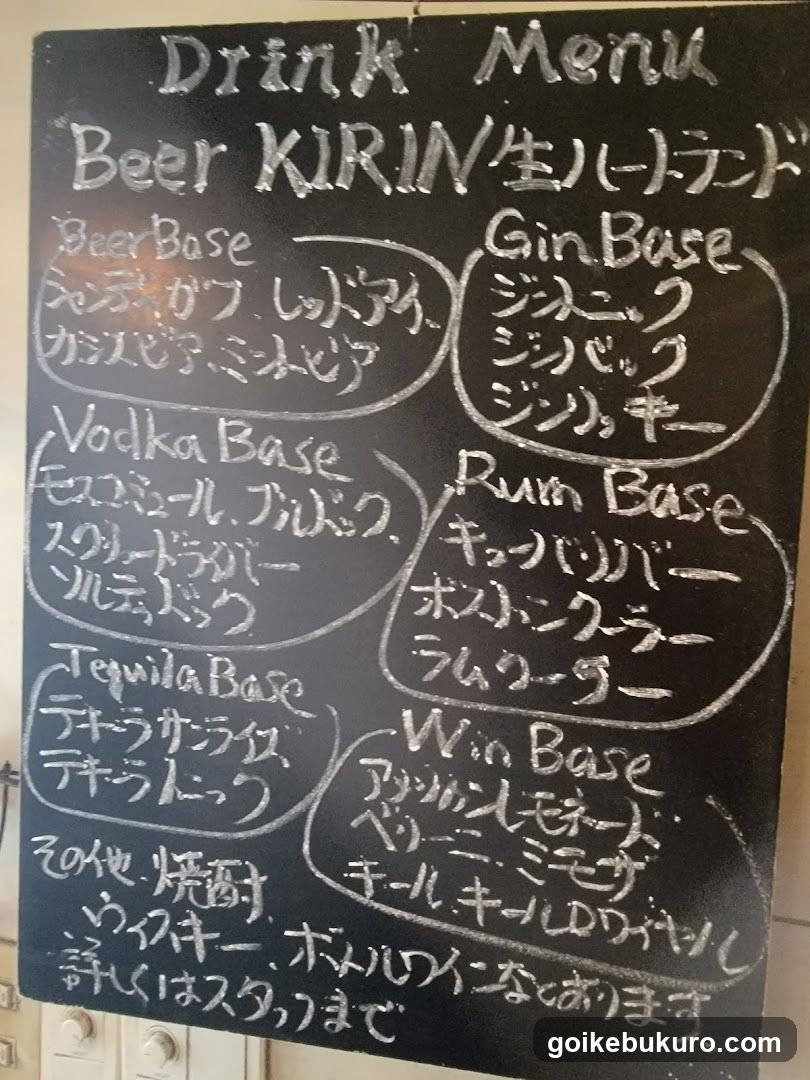 Drink Menu
Beer KIRIN 生ハートランド
Beer Base
シャンディガフ、レッドアイ、
カシスビア、ミントビア
Gin Base
ジントニック
ジンバック
ジンリッキー
Vodka Base
モスコミュール、ブルドック、
スクリュードライバー
ソルティドック
Rum Base
キューバリバー
ボストンクーラー
ラムクーラー
Tequila Base
テキーラサンライズ
テキーラトニック
Win Base
アメリカンレモネード
ベリーニ、ミモザ
キール、キールロワイヤル
その他、焼酎、
ウイスキー、ボトルワインなどあります
詳しくはスタッフまで
goikebukuro.com